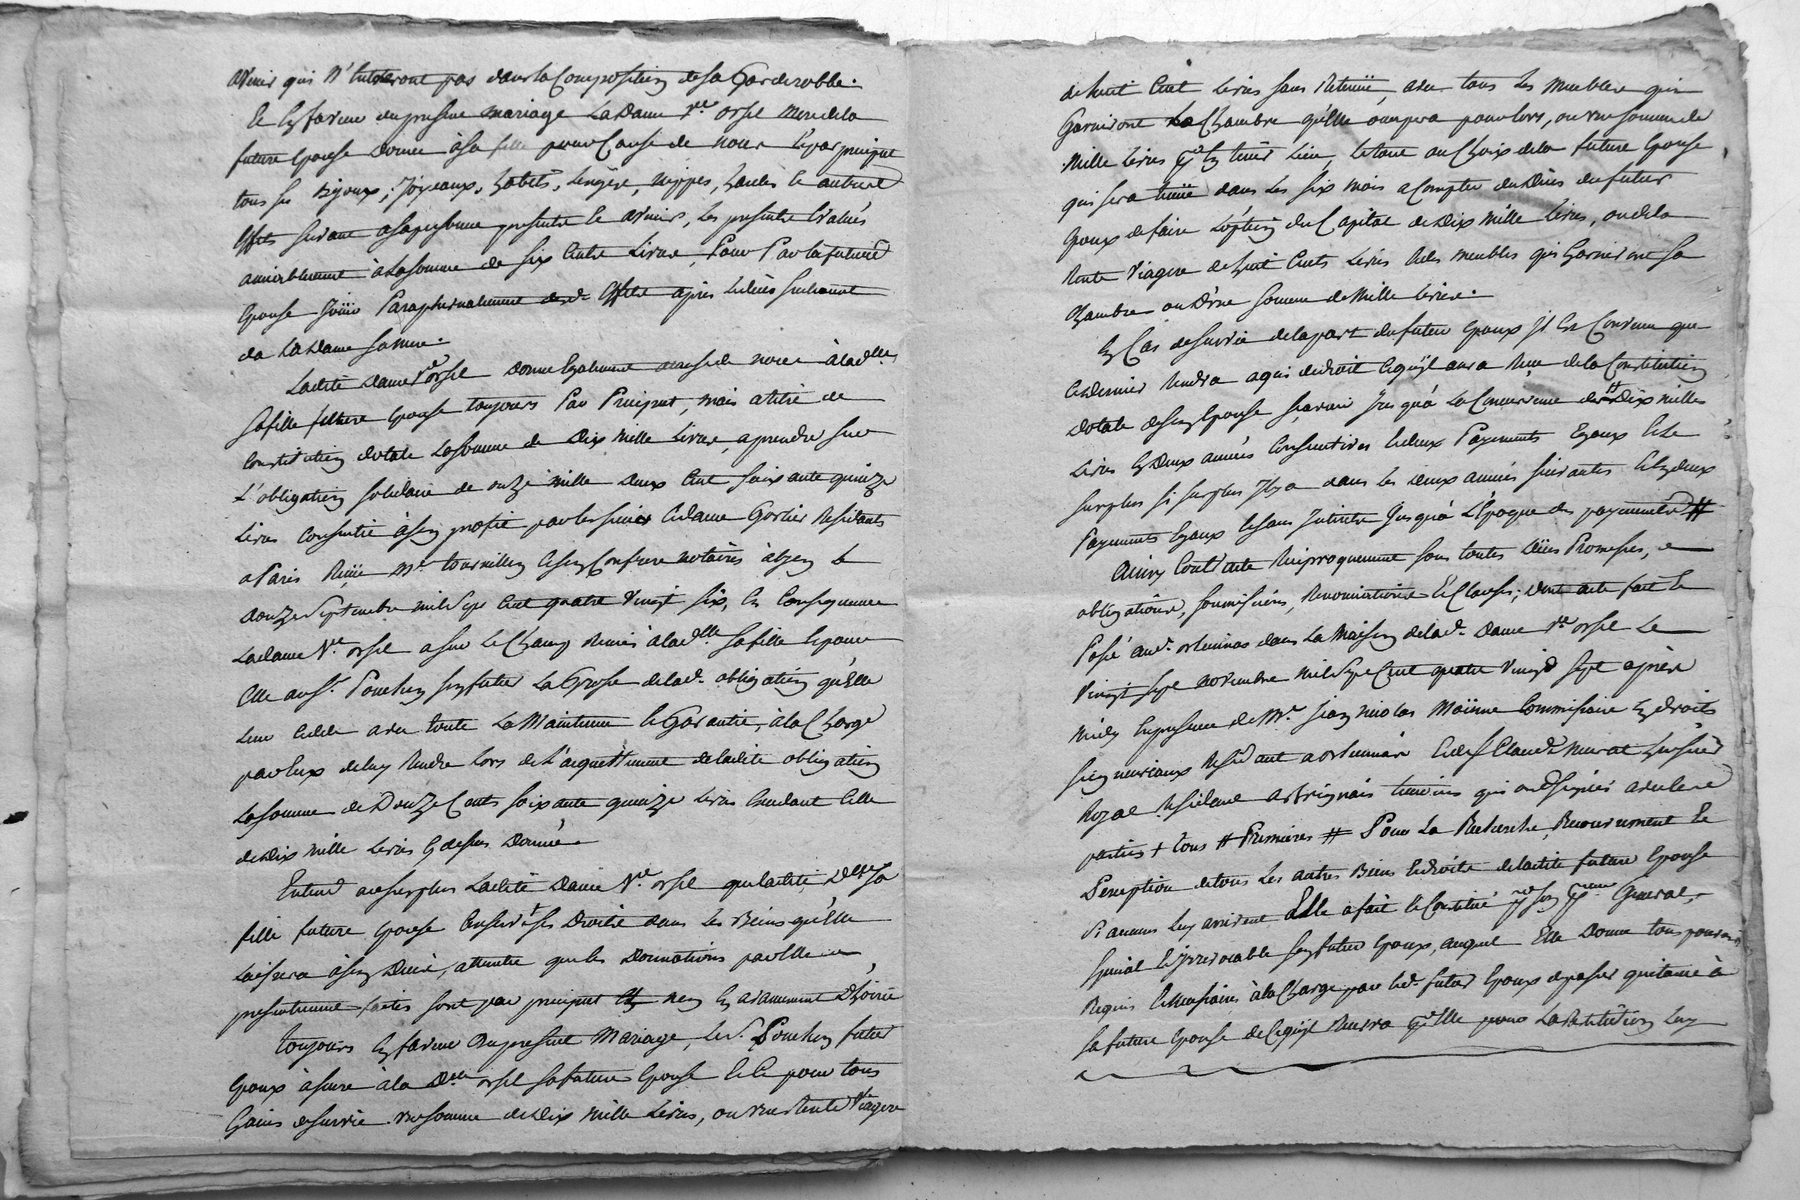 avenir qui n'entreront pas dans la Composition de sa Garderobbe.
Et En faveur du present mariage La Dame Ve orsel Mere de la
future Epouse Donne à sa fille pour Cause de noces Et par preciput
tous ses Bijoux, Joyeaux, habits, Lingère, nippes, hardes Et autres
Effets servant a sa personne presents Et avenir, Les presents Evalués
amiablement à La somme de six Cents Livres, Pour Par la future
Epouse Jouir Paraphernalement desd. Effets après Le décès seulement
de La Dame sa mere.
Ladite Dame Ve orsel Donne Egalement de noces à lad. Dlle
sa fille future Epouse toujours Par Preciput, mais a titre de
Constitution dotale La somme de Dix mille Livres, a prendre sur
L'obligation solidaire de onze mille deux Cent soixante quinze
Livres Consentie à son profit par les sieur Et dame Gortier Residants
a Paris Reçüe Me tournillon Et son Confrere notaires à Lyon Le
douze septembre mil sept Cent quatre vingt six, En Consequence
La dame Ve orsel a sur Le Champ Remis à lad. Dlle sa fille Et pour
Elle au sr. Ponchon son futur La Grosse de lad. obligation qu'elle
leur Cedde avec toute La Maintenue Et Garantie, à la Charge
par Eux de luy Rendre Lors de L'acquittement de ladite obligation
La somme de Douze Cents soixante quinze Livres Excedant Celle
de Dix mille Livres Cy dessus Donnée.
Entend au surplus Ladite Dame Ve orsel que ladite Dlle sa
fille future Epouse Conserve ses Droits dans Les Biens qu'elle
Laissera à son Décès, attendu que les Donnations par Elle
presentement faites sont par preciput Et non En avancement D'hoirie
toujours En faveur du present Mariage, Le sr. Ponchon futur
Epoux assure à la Dlle orsel sa future Epouse Et Ce pour tous
Gains de survie une somme de Dix mille Livres, ou une Rente Viagere
de huit Cent Livres sans Retenüe, avec tous Les Meubles qui
Garniront La Chambre qu'elle occupera pour lors, ou une somme de
Mille Livres pr En tenir Lieu, Le tout au Choix de la future Epouse
qui sera tenüe dans Les six mois a Compter du Décès du futur
Epoux de faire L'option du Capital de Dix mille Livres, ou de la
Rente Viagere de huit Cents Livres Et des meubles qui Garniront sa
Chambre ou D'une somme de Mille Livres.
En Cas de survie de la part du futur Epoux il Est Convenu que
Ce dernier Rendra a qui de droit Ce qu'il aura Reçu de la Constitution
dotale de son Epouse, savoir Jusqu'à La Concurrence desd. Dix milles
Livres En Deux années Consecutives Et deux Payements Egaux Et Le
surplus si surplus Il y a dans Les deux années suivantes Et En deux
Payements Egaux Et sans Interets Jusqu'à L'Epoque des payements #
Ainsy Convenu Reciproquement sous toutes Dües Promesses,
obligations, soumissions, Renonciations Et Clauses; dont acte fait Et
Passé aud. ortennas dans La Maison de lad. Dame Ve orsel Le
vingt sept novembre mil sept Cent quatre vingt sept après
midy En presence de Mr. Jean nicolas Moïnne Commissaire En droits
seigneuriaux Residant a ortennas Et de sr Claude murat huissier
Royal Residant a Brignais temoins qui ont signés avec les
parties + tous # Premieres # Pour La Recherche Recouvrement Et
Perception de tous Les autres Biens Et droits de ladite future Epouse
Si aucuns Luy arrivent Elle a fait Et Constitué pr son Pr General,
special Et Irrevocable son futur Epoux, auquel Elle Donne tous pouvoirs
Requis Et necessaires à la Charge par led. futur Epoux de passer quitance à
sa future Epouse de Ce qu'il Recevra pr Elle pour La Restitution Luy